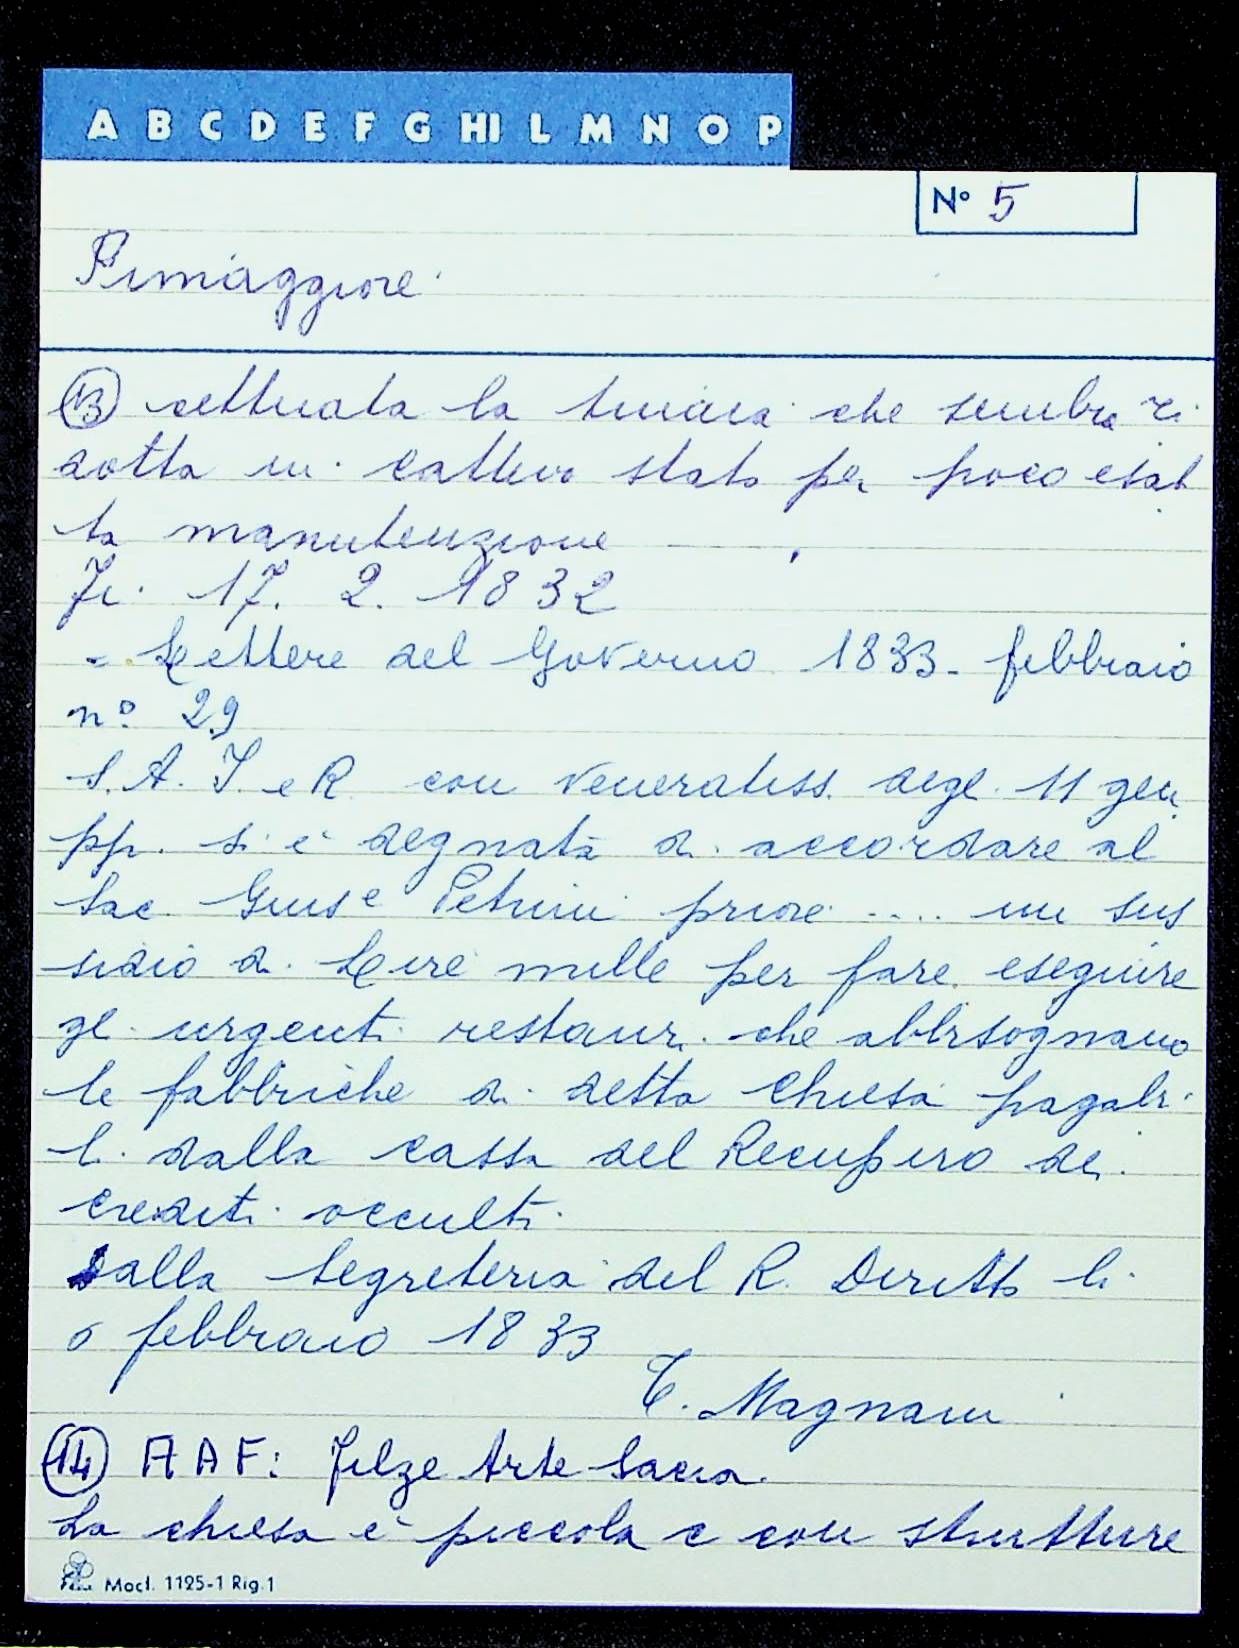 A B C D E F G HI L M N O P
N° 5
Rimaggiore
13 cettuata la tinaia che sembra ri
dotta in cattivo stato per poco esat
ta manutenzione
Fi. 17. 2. 1832
= Lettere del Governo 1833 - febbraio
n° 29
S. A. I. e R. con veneratiss. 11 gen
pp. si è degnata di accordare al
Sac. Gius.e Petrini priore .... un sus
sidio di Lire mille per fare eseguire
gl urgenti restauri che abbisognano
le fabbriche di detta Chiesa pagabi
li dalla cassa del Recupero dei
crediti occulti
Dalla Segreteria del R. Diritto li
6 febbraio 1833
T. Magnani
14 A A F: Filze Arte Sacra.
La chiesa è piccola e con strutture
Mod. 1125-1 Rig.1